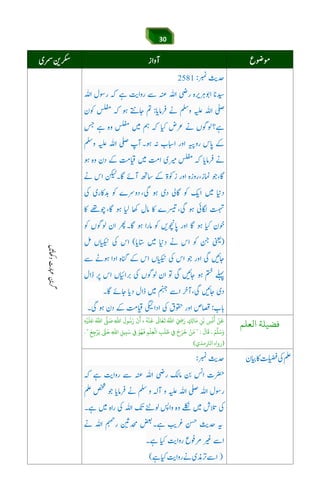 30
موضوع
آواز
سکرین سمری
حدیث نمبر: 2581
سیدنا ابوہریرہ رضی اللہ عنہ سے روایت ہے کہ رسول اللہ
صلی اللہ علیہ وسلم نے فرمایا: تم جانتے ہو کہ مفلس کون
ہے؟ لوگوں نے عرض کیا کہ ہم میں مفلس وہ ہے جس
کے پاس روپیہ اور اسباب نہ ہو۔ آپ صلی اللہ علیہ وسلم
نے فرمایا کہ مفلس میری امت میں قیامت کے دن وہ ہو
گا، جو نماز، روزہ اور زکوٰۃ کے ساتھ آئے گا۔ لیکن اس نے
دنیا میں ایک کو گالی دی ہو گی، دوسرے کو بدکاری کی
تہمت لگائی ہو گی، تیسرے کا مال کھا لیا ہو گا، چوتھے کا
خون کیا ہو گا اور پانچویں کو مارا ہو گا۔ پھر ان لوگوں کو
(یعنی جن کو اس نے دنیا میں ستایا) اس کی نیکیاں مل
جائیں گی اور جو اس کی نیکیاں اس کے گناہ ادا ہونے سے
پہلے ختم ہو جائیں گی تو ان لوگوں کی برائیاں اس پر ڈال
دی جائیں گی، آخر اسے جہنم میں ڈال دیا جائے گا۔
باب: قصاص اور حقوق کی ادائیگی قیامت کے دن ہو گی۔
علم کی فضیلت کا بیان
فضيلة العلم
عَنْ أَنَسِ بْنِ مَالِكٍ رَضِيَ اللَّهُ تَعَالَى عَنْهُ، أَنَّ رَسُولَ اللَّهِ صَلَّى اللَّهُ عَلَيْهِ
وَسَلَّمَ، قَالَ: " مَنْ خَرَجَ فِي طَلَبِ الْعِلْمِ فَهُوَ فِي سَبِيلِ اللَّهِ حَتَّى يَرْجِعَ "
(رواه الترمذي)
حدیث نمبر:
حضرت انس بن مالک رضی اللہ عنہ سے روایت ہے کہ
رسول اللہ صلی اللہ علیہ و آلہ و سلم نے فرمایا جو شخص علم
کی تلاش میں نکلے وہ واپس لوٹنے تک اللہ کی راہ میں ہے۔
یہ حدیث حسن غریب ہے۔ بعض محدثین رحمہم اللہ نے
اسے غیر مرفوع روایت کیا ہے۔
(اسے ترمذی نے روایت کیا ہے)